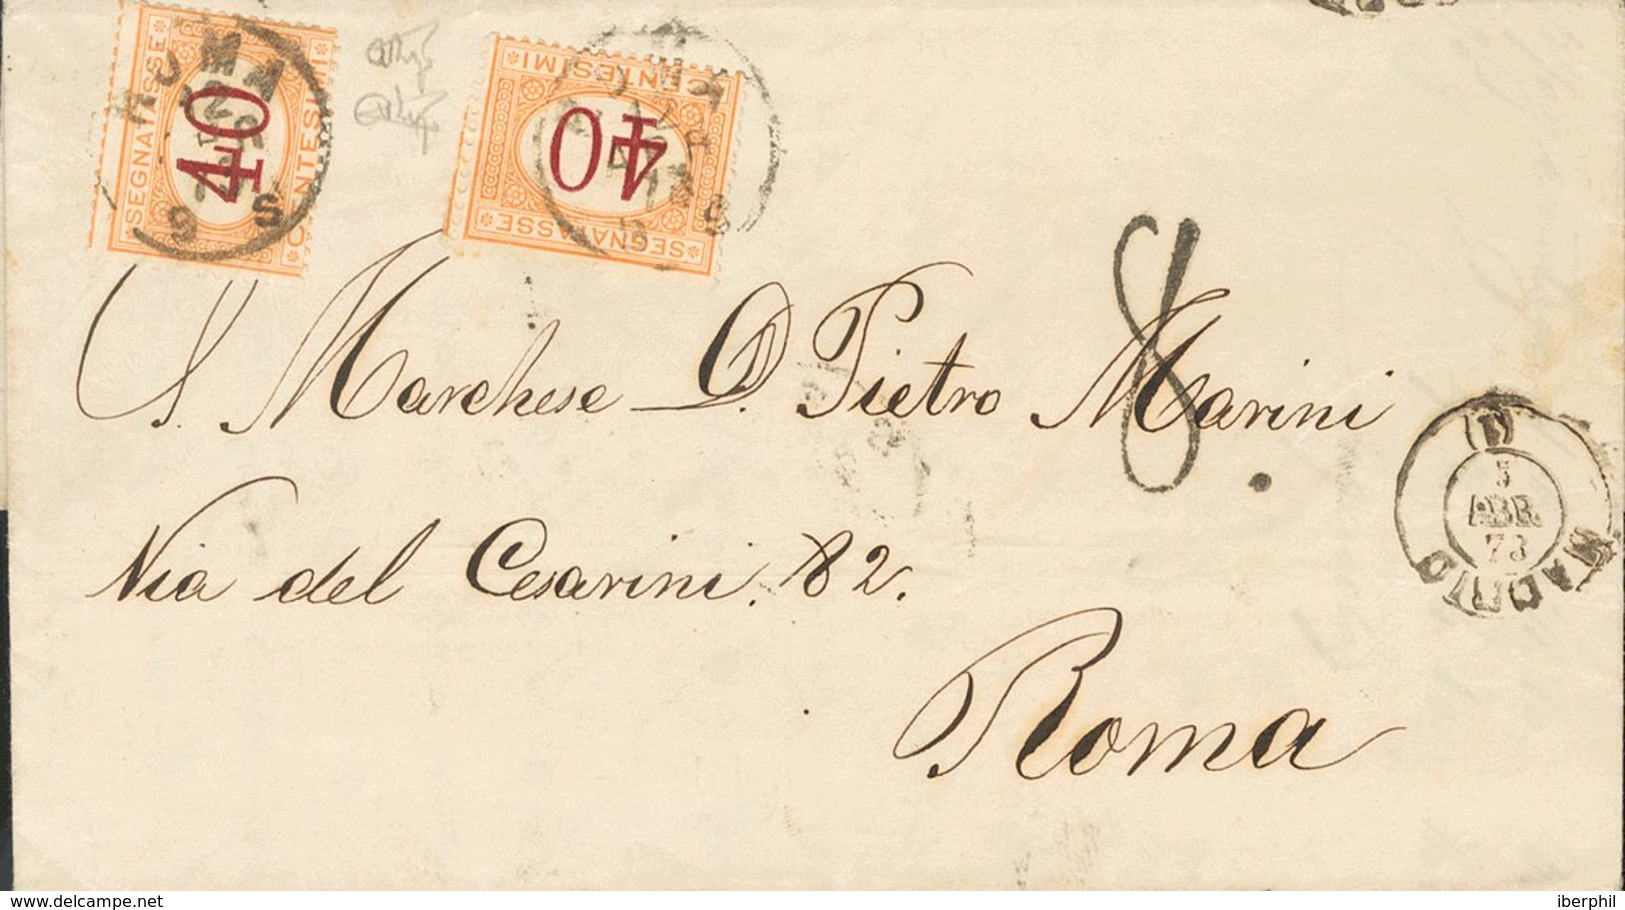 SEGNATASSE
40
CENTESIMI
ROMA
S
CENTESIMI
40
SEGNATASSE
8.
S. Marchese D. Pietro Marini
(1)
5
ABR.
73
MADRID
Via del Cesarini. 82.
Roma
delcampe.net
iberphil